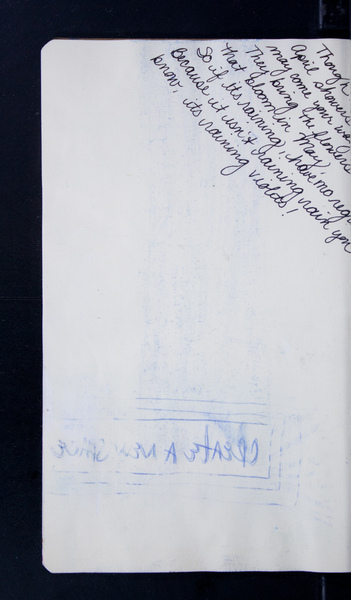 Though
April showers
may come your wa
They bring the flowers
That bloom in May,
So if its raining, have no regr
Because it isn't raining rain you
know,
its raining violets!
CREATE A NEW SINCE